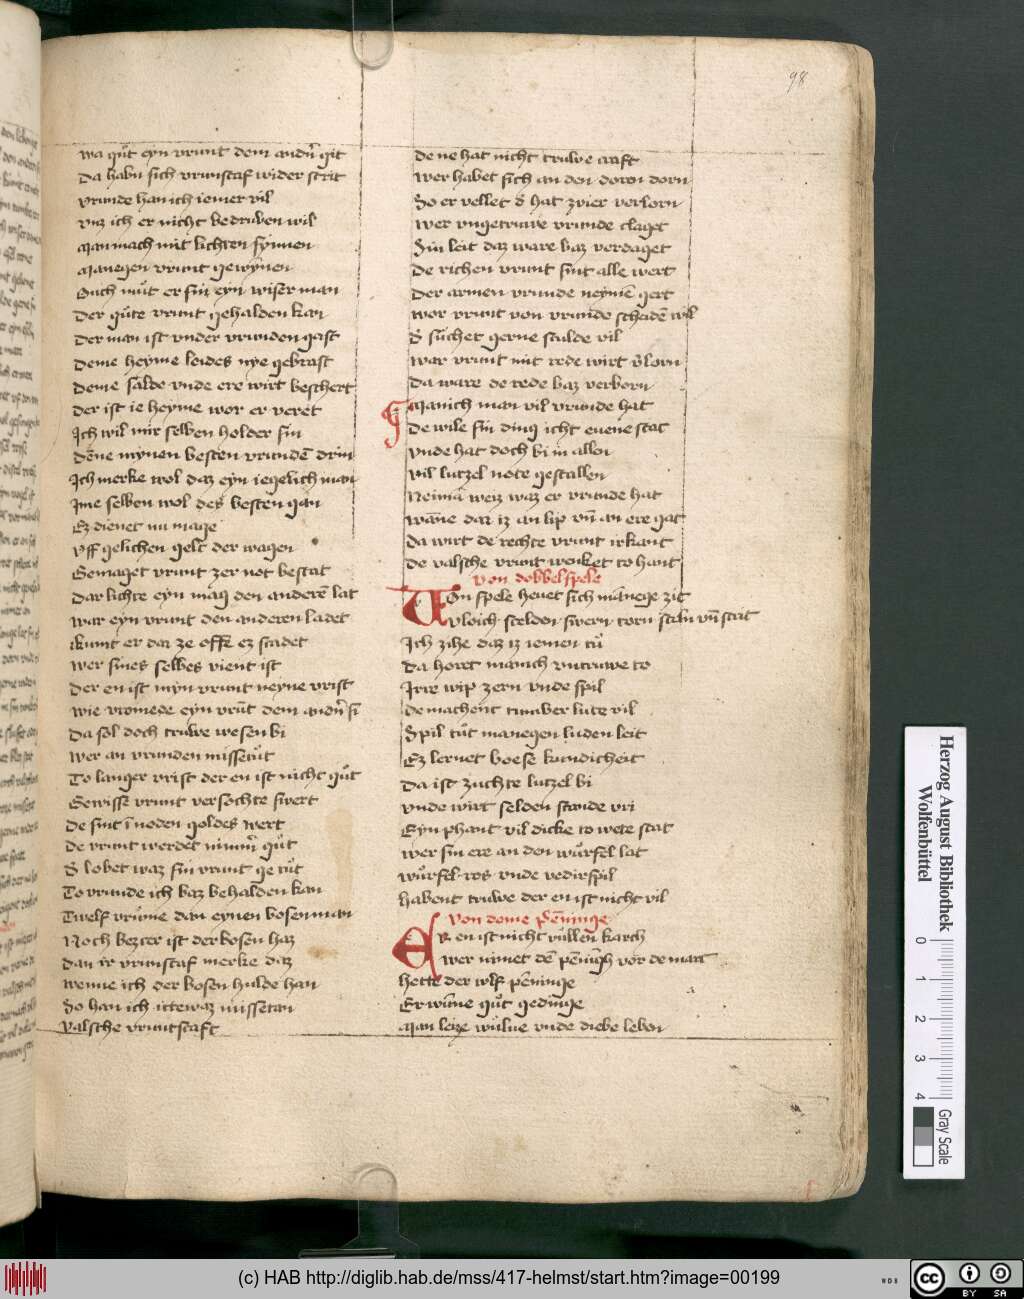 98
wa gůt eyn vrunt dem andn̄ git
Da habn sich vruntscaf wider strit
vrunde han ich iemer vil
vnz ich er nicht bedruben wil
Man mach mit lichten synnen
Manegen vrunt gewynnen
Ouch můt er sin eyn wiser man
Der gůte vrunt gehalden kan
Der man ist vnder vrunden gast
Deme heyme leides nye gebrast
Deme salde vnde ere wirt beschert
Der ist ie heyme wor er veret
Ich wil mir selben holder sin
Dēne mynen besten vrundē drin
Ich merke wol daz eyn iegelich man
Ime selben wol des besten gan
Ez dienet nu mage
Vff gelichen gelt der wagen
Gemaget vrunt zer not bestat
Dar lichte eyn mag den anderē lat
war eyn vrunt den anderen ladet
kumt er dar ze offte ez scadet
wer sines selbes vient ist
Der en ist myn vrunt neyne vrist
wie vromede eyn vrūt dem andn̄ si
Da sol doch truwe wesen bi
wer an vrunden missetůt
To langer vrist der en ist nicht gůt
Gewisse vrunt versochte swert
De sint ī noden goldes wert
De vrunt werdet nimm̄ gůt
D lobet waz sin vrunt ge tůt
To vrunde ich baz behalden kan
Twelf vrume dan eynen bosen man
Noch bezter ist der bosen haz
Dan ir vruntscaf merke daz
wenne ich der bosen hulde han
So han ich ittewaz missetan
Valsche vruntscaft
De ne hat nicht truwe craft
wer habet sich an den doren dorn
So er vellet d hat zwier verlorn
wer vngetruwe vrunde claget
Sin leit daz ware baz verdaget
De richen vrunt sint alle wert
Der armen vrunde neymē gert
wor vrunt von vrunde scheidē wil
D suchet gerne sculde vil
war vrunt mit rede wirt v̄lorn
Da ware de rede baz verborn
Manich man vil vrunde hat
De wile sin ding icht euene stat
vnde hat doch bi in allen
vil lutzel note gestallen
Neimā weiz waz er vrunde hat
wāne daz iz an lip vn̄ an ere gat
Da wirt de rechte vrunt irkant
De valsche vrunt wenket to hant
von dobbelspele
Von spele heuet sich manege zit
Vloich scelden swern torn scaln vn̄ strit
Ich zihe daz iz iemen tů
Da horet manich vntruwe to
Irre wip zern vnde spil
de machent tumber lute vil
Spil tůt manegen luden leit
Ez lernet boese kundicheit
Da ist zuchte lutzel bi
vnde wirt selden scande vri
Eyn phant vil dicke to wete stat
wer sin ere an den wůrfel lat
wůrfel ros vnde vedirspil
habent truwe der en ist nicht vil
Von deme pēninge
Er en ist nicht vůllen karch
wer nimet dē pēnīgh vor de marc
hette der wlf pēninge
Er wūne gůt gedinge
Man leize wulue vnde diebe leben
Herzog August Bibliothek
Wolfenbüttel
0 1 2 3 4
Gray Scale
(c) HAB http://diglib.hab.de/mss/417-helmst/start.htm?image=00199
WDB
cc BY SA